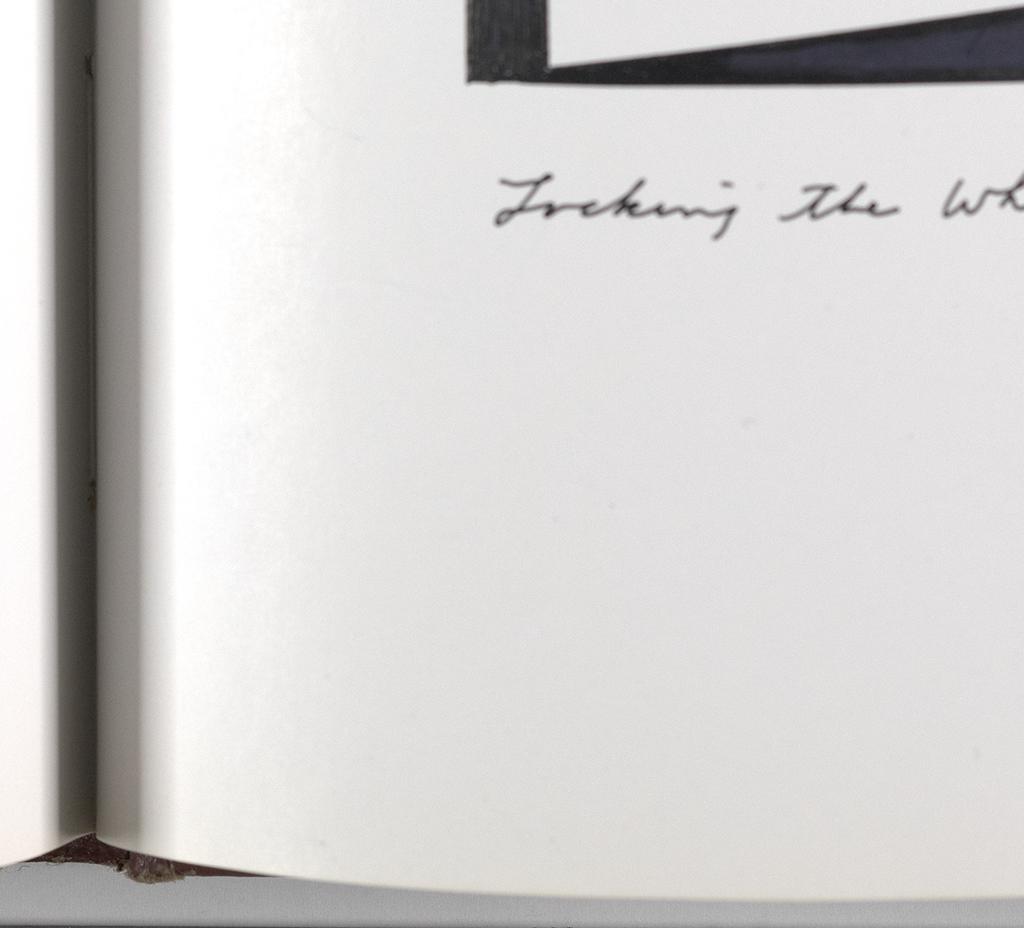 Locking the Wh